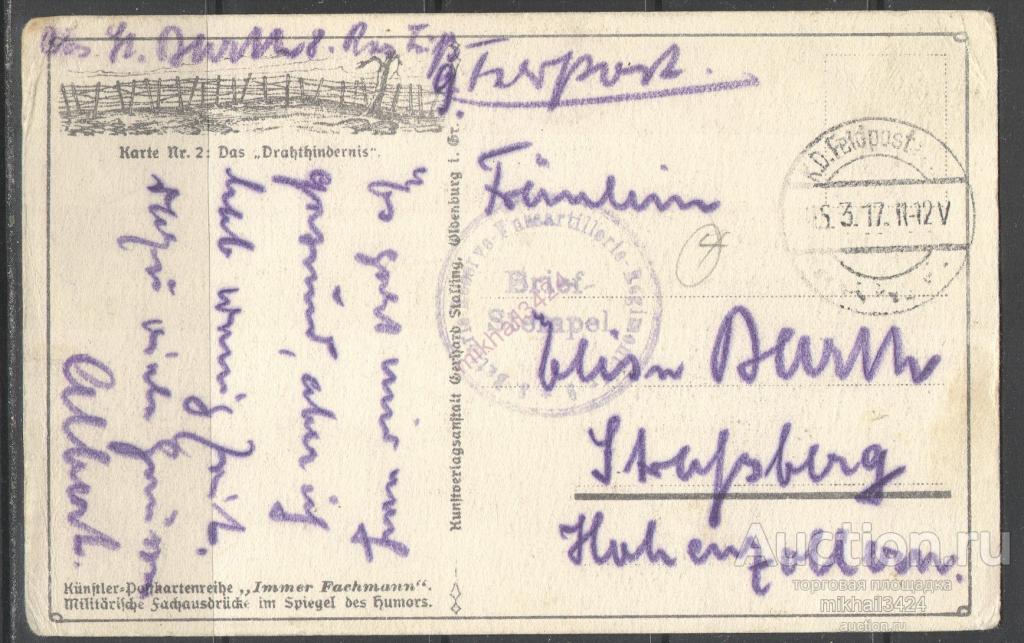 Abs. Barth 8. Res.
Feldpost.
Karte Nr. 2: Das „Drahthindernis“.
Es geht mir noch
gesund, aber ich
habe wenig Zeit.
viele Grüsse
Albert.
Künstler-Postkartenreihe „Immer Fachmann“.
Militärische Fachausdrücke im Spiegel des Humors.
Kunstverlagsanstalt Gerhard Stalling, Oldenburg i. Gr.
Brief-
Stempel
Fußartillerie-Regiment
K.D. Feldpost
5.3.17. 11-12V
4
Fräulein
Elise Barth
Straßberg
Hohenzollern.
mikhail3424
Auction.ru
торговая площадка
mikhail3424
auction.ru